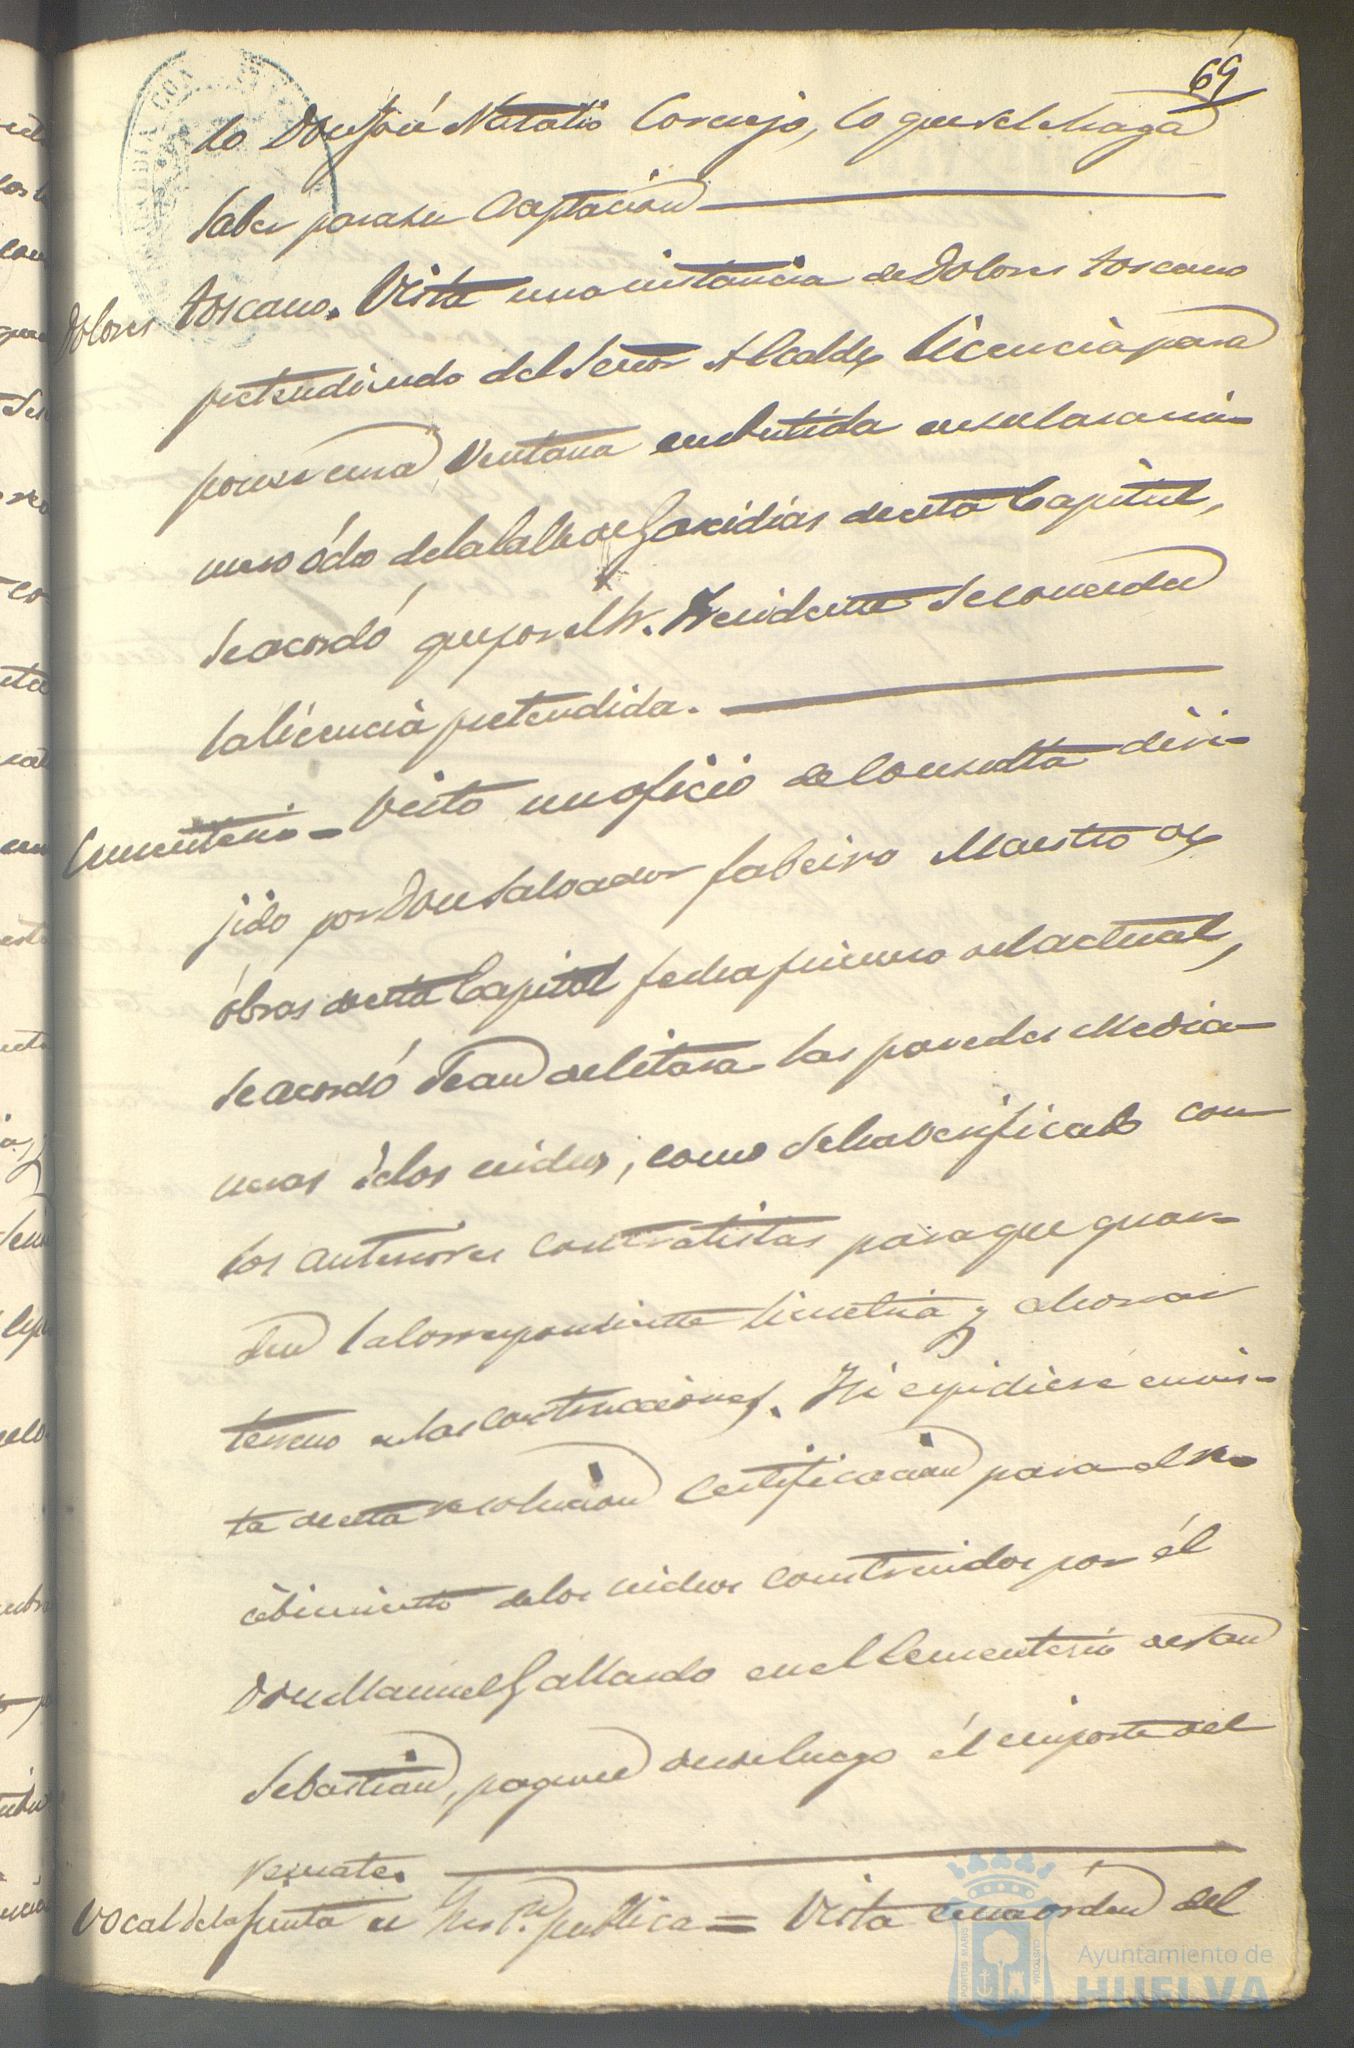 69
lo Don José Natalio Cornejo, lo que se le haga
saber para su aceptacion
Dolores Toscano. Vista una instancia de Dolores Toscano
pretendiendo del Señor Alcalde licencia para
poner una Ventana embutida en su casa nú-
mero ócho de la calle de Garcidias de esta Capital,
se acordó que por el Sr. Presidente se conceda
la licencia pretendida.
Cementerio - Visto un oficio de consulta diri-
jido por Don Salvador Fabeiro Maestro de
óbras de esta Capital fecha primero del actual,
se acordó sean de citara las paredes media-
neras de los nichos, como se ha verificado con
los anteriores contratistas para que guar-
den la correspondiente simetria y ahorrar
terreno en las construcciones. Y si espidiese en vis-
ta de esta resolucion certificacion para el re-
cibimiento de los nichos construidos por él
Don Manuel Gallardo en el Cementerio de San
Sebastian, paguese desde luego él importe del
remate.
Vocal de la Junta de Inst.on publica = Vista una orden del
Ayuntamiento de
HUELVA